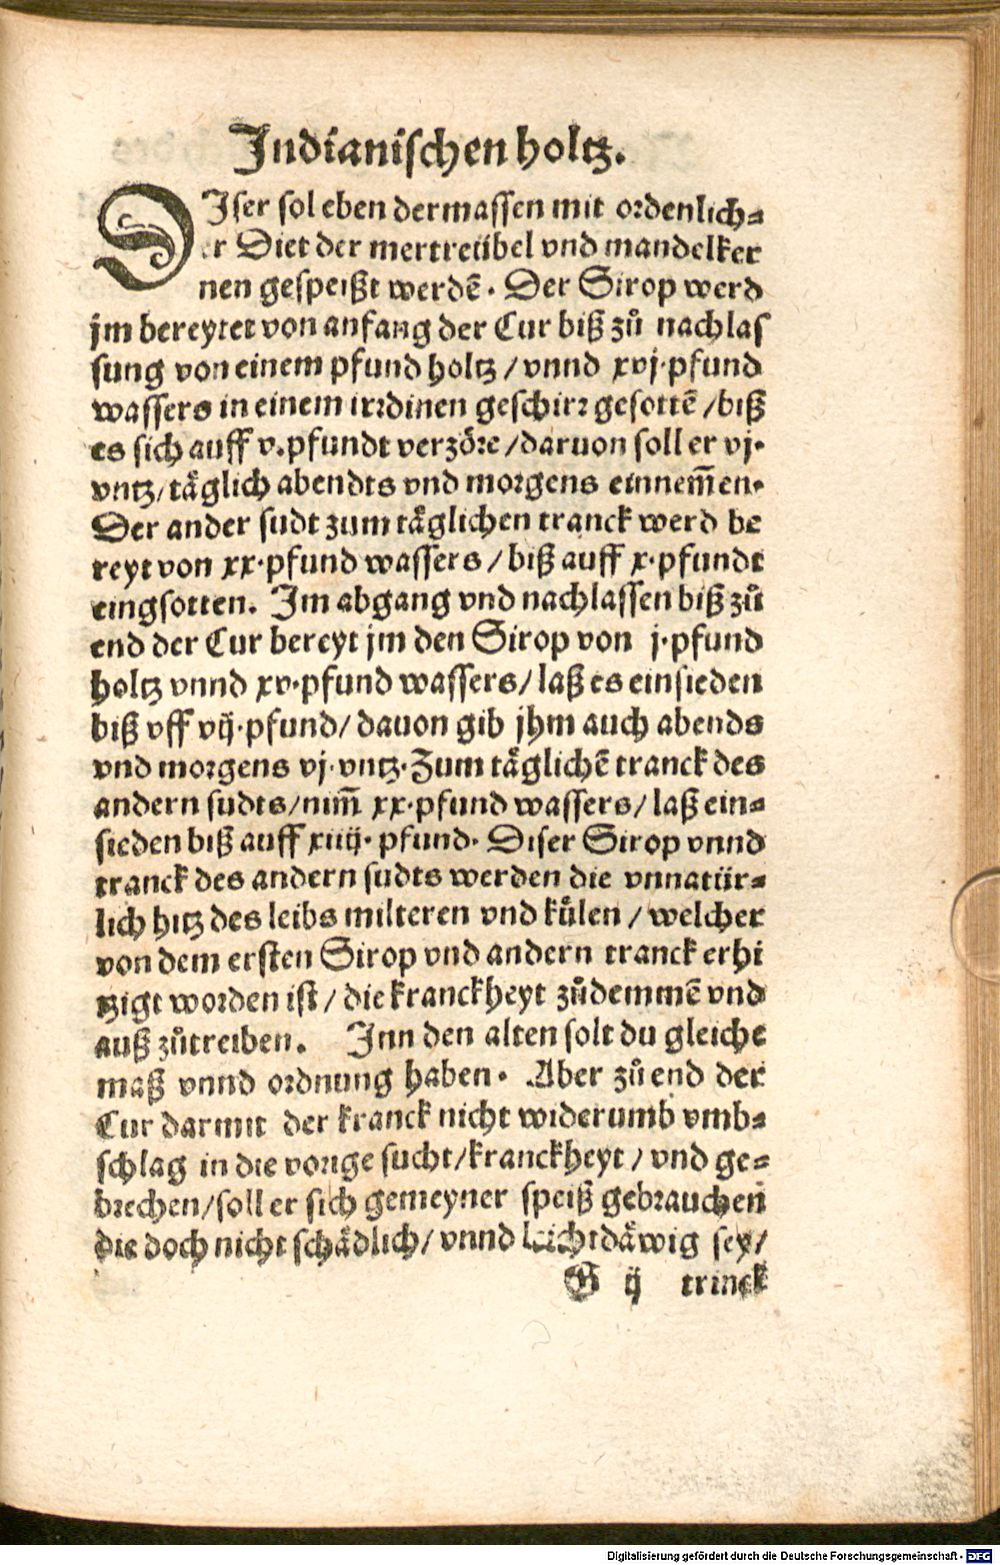 Indianischen holtz.
DIser sol eben dermassen mit ordenlich⸗
er Diet der mertreübel vnd mandelker
nen gespeißt werdẽ. Der Sirop werd
jm bereytet von anfang der Cur biß zů nachlas
sung von einem pfund holtz / vnnd xvj. pfund
wassers in einem irrdinen geschirr gesottẽ / biß
es sich auff v. pfundt verzöre / daruon soll er vj.
vntz / täglich abendts vnd morgens einnem̃en.
Der ander sudt zum täglichen tranck werd be
reyt von xx. pfund wassers / biß auff x. pfundt
eingsotten. Im abgang vnd nachlassen biß zů
end der Cur bereyt jm den Sirop von j. pfund
holtz vnnd xv. pfund wassers / laß es einsieden
biß vff vij. pfund / dauon gib jhm auch abends
vnd morgens vj. vntz. Zum täglichẽ tranck des
andern sudts / nim̃ xx. pfund wassers / laß ein⸗
sieden biß auff xiiij. pfund. Diser Sirop vnnd
tranck des andern sudts werden die vnnatür⸗
lich hitz des leibs milteren vnd kůlen / welcher
von dem ersten Sirop vnd andern tranck erhi
tzigt worden ist / die kranckheyt zůdemmẽ vnd
auß zůtreiben. Inn den alten solt du gleiche
maß vnnd ordnung haben. Aber zů end der
Cur darmit der kranck nicht widerumb vmb⸗
schlag in die vorige sucht / kranckheyt / vnd ge⸗
brechen / soll er sich gemeyner speiß gebrauchen
die doch nicht schädlich / vnnd leichtdäwig sey /
G ij trinck
Digitalisierung gefördert durch die Deutsche Forschungsgemeinschaft - DFG